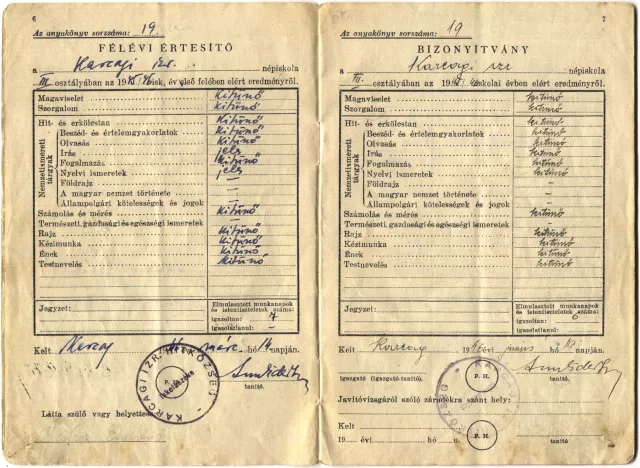 6
Az anyakönyv sorszáma: 19
FÉLÉVI ÉRTESITŐ
a Karcagi izr. népiskola
III osztályában az 1945/46 isk. év első felében elért eredményről.
Magaviselet kitünő
Szorgalom kitünő
Nemzetismereti tárgyak
Hit- és erkölcstan kitünő
Beszéd- és értelemgyakorlatok kitünő
Olvasás kitünő
Irás jeles
Fogalmazás kitünő
Nyelvi ismeretek jeles
Földrajz –
A magyar nemzet története –
Állampolgári kötelességek és jogok –
Számolás és mérés kitünő
Természeti, gazdasági és egészségi ismeretek
Rajz kitünő
Kézimunka kitünő
Ének kitünő
Testnevelés kitünő
Jegyzet:
Elmulasztott munkanapok és istentiszteletek száma:
igazoltan: 7
igazolatlanul: –
Kelt Karcag márc. hó 14 napján.
KARCAGI IZR. HITKÖZSÉG
P. H.
iskolaszéke
tanitó.
Látta szülő vagy helyettese:
7
Az anyakönyv sorszáma: 19
BIZONYITVÁNY
a Karcagi izr népiskola
III. osztályában az 1945/46 iskolai évben elért eredményről.
Magaviselet kitünő
Szorgalom kitünő
Nemzetismereti tárgyak
Hit- és erkölcstan kitünő
Beszéd- és értelemgyakorlatok kitünő
Olvasás kitünő
Irás kitünő
Fogalmazás kitünő
Nyelvi ismeretek kitünő
Földrajz –
A magyar nemzet története –
Állampolgári kötelességek és jogok –
Számolás és mérés kitünő
Természeti, gazdasági és egészségi ismeretek
Rajz kitünő
Kézimunka kitünő
Ének kitünő
Testnevelés kitünő
Jegyzet:
Elmulasztott munkanapok és istentiszteletek száma:
igazoltan: 6
igazolatlanul:
Kelt Karcag 1946 évi hó napján.
P. H.
igazgató (igazgató-tanitó). tanitó.
Javitóvizsgáról szóló záradékra szánt hely:
Kelt
19 évi hó n.
P. H.